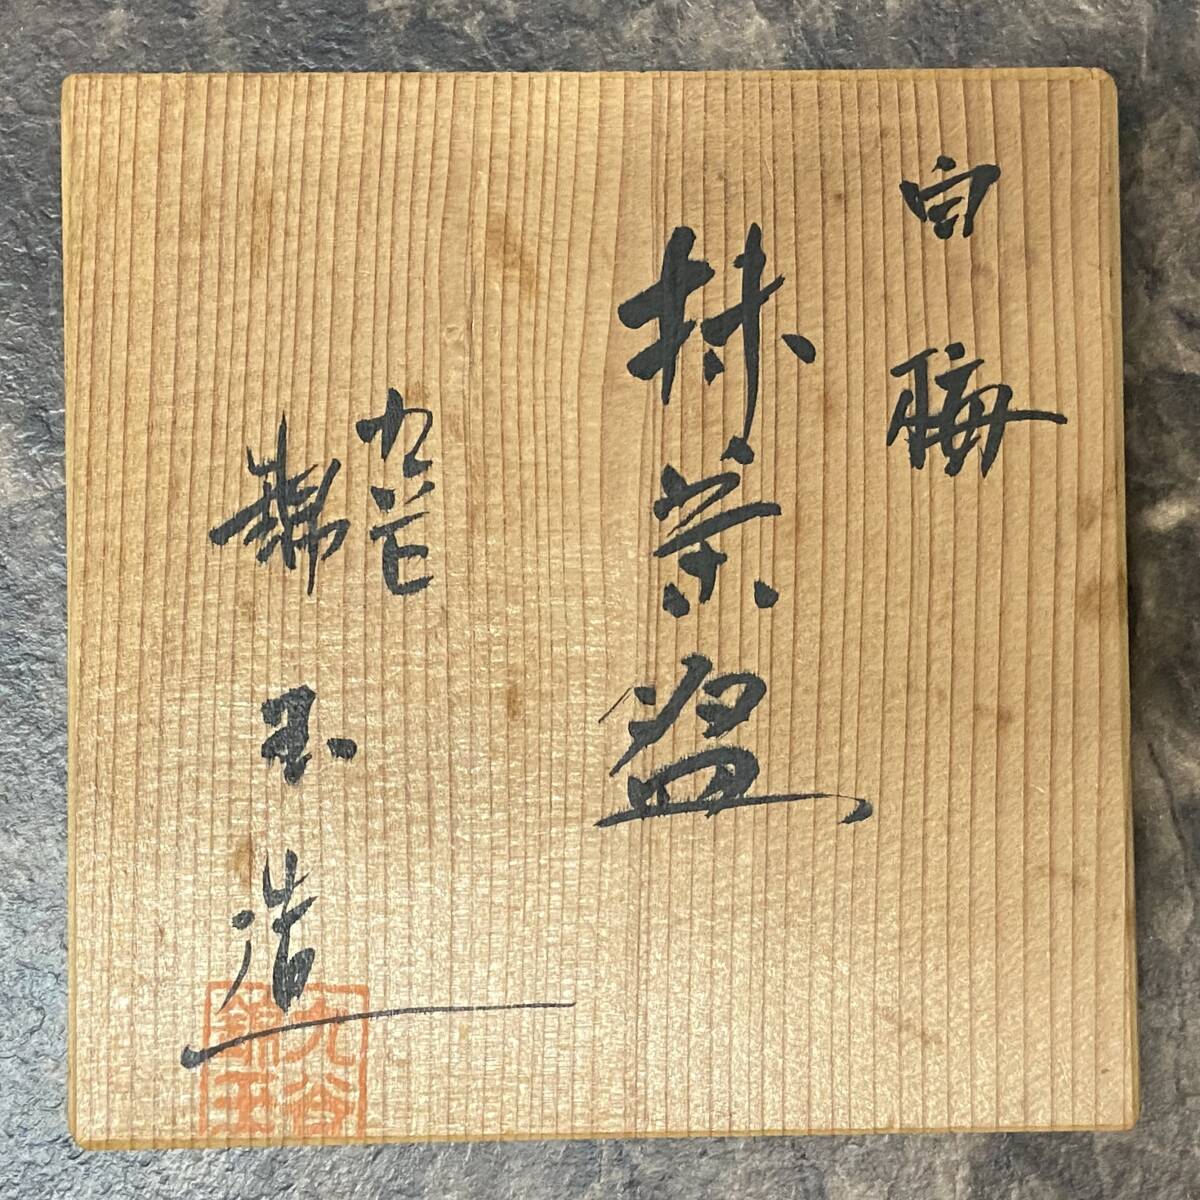 白梅
抹茶盌
九谷
錦玉造
九谷
錦玉